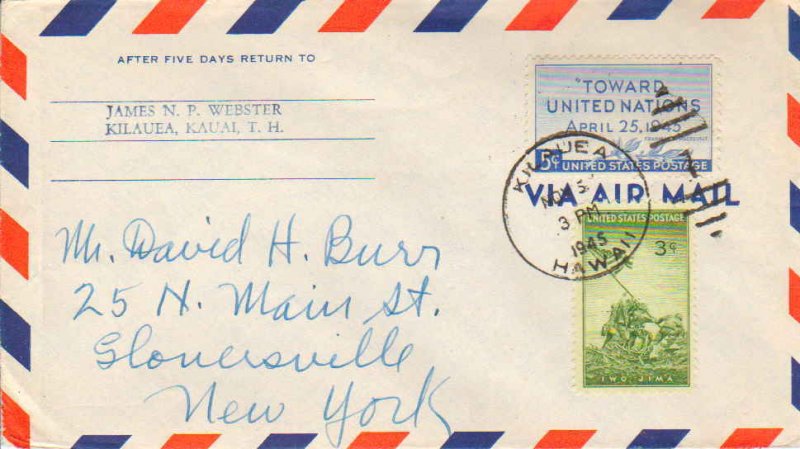 AFTER FIVE DAYS RETURN TO
JAMES N. P. WEBSTER
KILAUEA, KAUAI, T. H.
"TOWARD
UNITED NATIONS
APRIL 25, 1945
5¢ UNITED STATES POSTAGE
VIA AIR MAIL
KILAUEA
NOV 5
3 PM
1945
HAWAII
UNITED STATES POSTAGE
3¢
IWO JIMA
Mr. David H. Burr
25 N. Main St.
Gloversville
New York